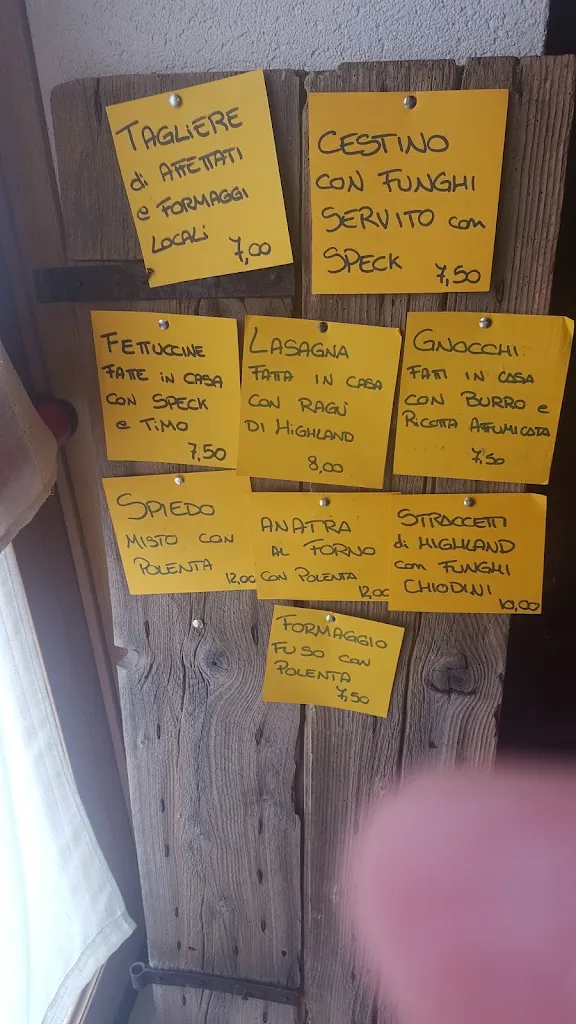 TAGLIERE
di AFFETTATI
e FORMAGGI
LOCALi
7,00
CESTINO
CON FUNGHI
SERVITO con
SPECK 7,50
FETTUCCINE
FATTE iN CASA
CON SPECK
e TiMO
7,50
LASAGNA
FATTA IN CASA
CON RAGÙ
DI HiGHLAND
8,00
GNOCCHI
FATTI IN CASA
CON BURRO e
RICOTTA AFFUMICATA
7,50
SPIEDO
MISTO CON
POLENTA 12,00
ANATRA
AL FORNO
CON POLENTA 12,00
STRACCETTI
di HIGHLAND
con FUNGHI
CHIODINI
10,00
FORMAGGIO
FUSO CON
POLENTA
7,50